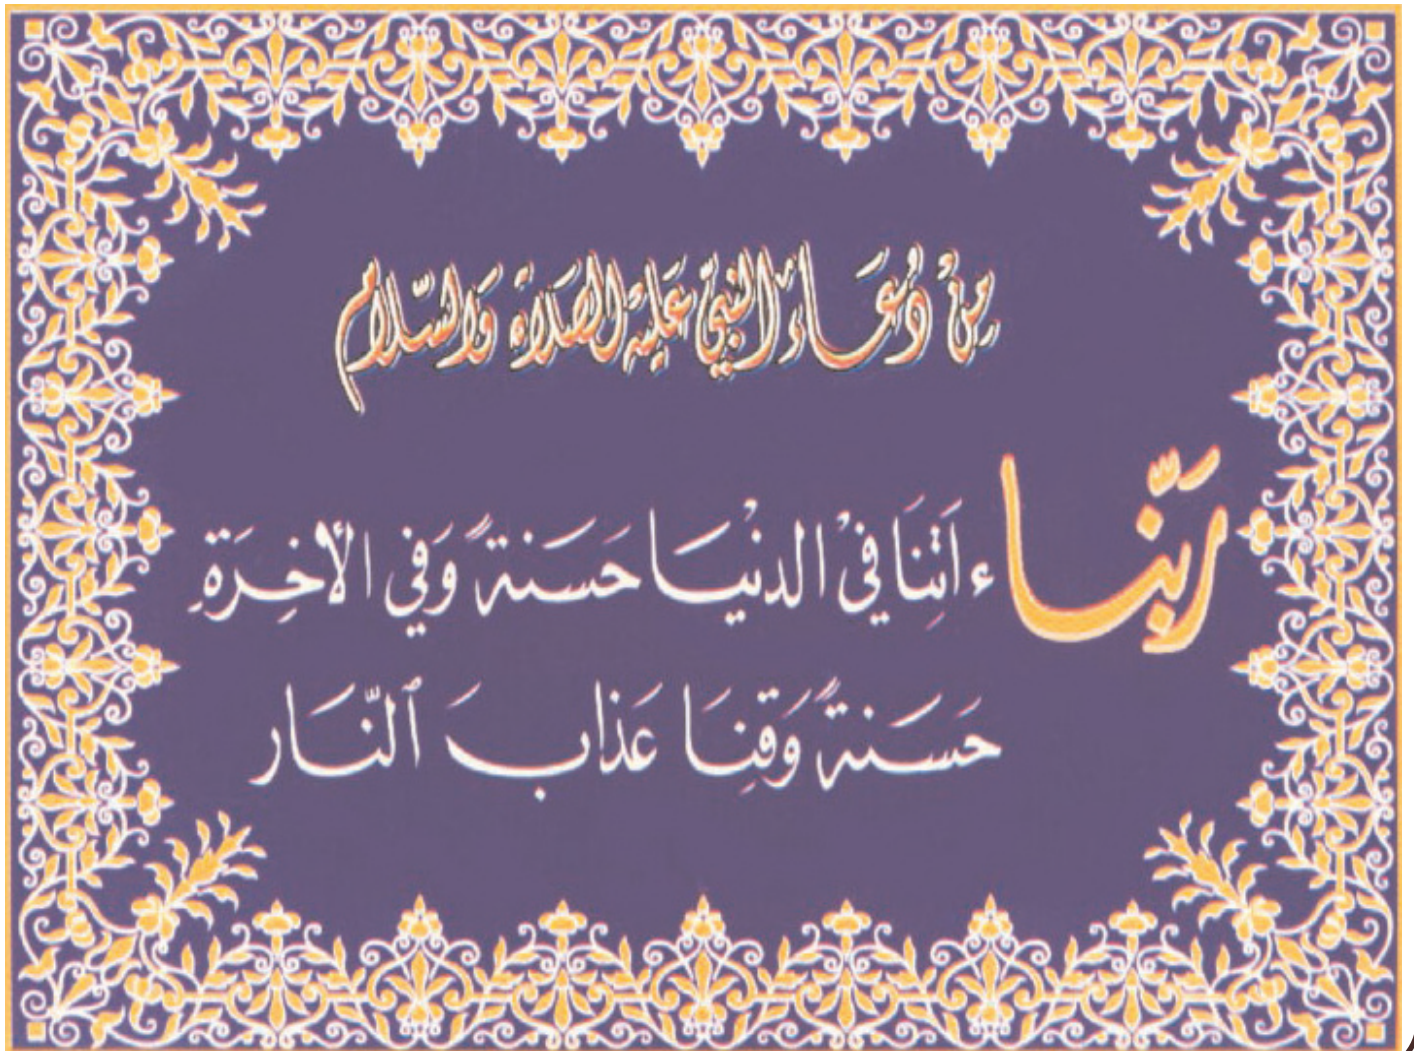 مِنْ دُعَاءِ النَّبِيِّ عَلَيْهِ الصَّلَاةِ وَالسَّلَام
رَبَّنَا ءَاتِنَا فِيْ الدنْيَا حَسَنةً وَفِي الأخِرَةِ
حَسَنةً وَقِنَا عَذَابَ ٱلنَّار